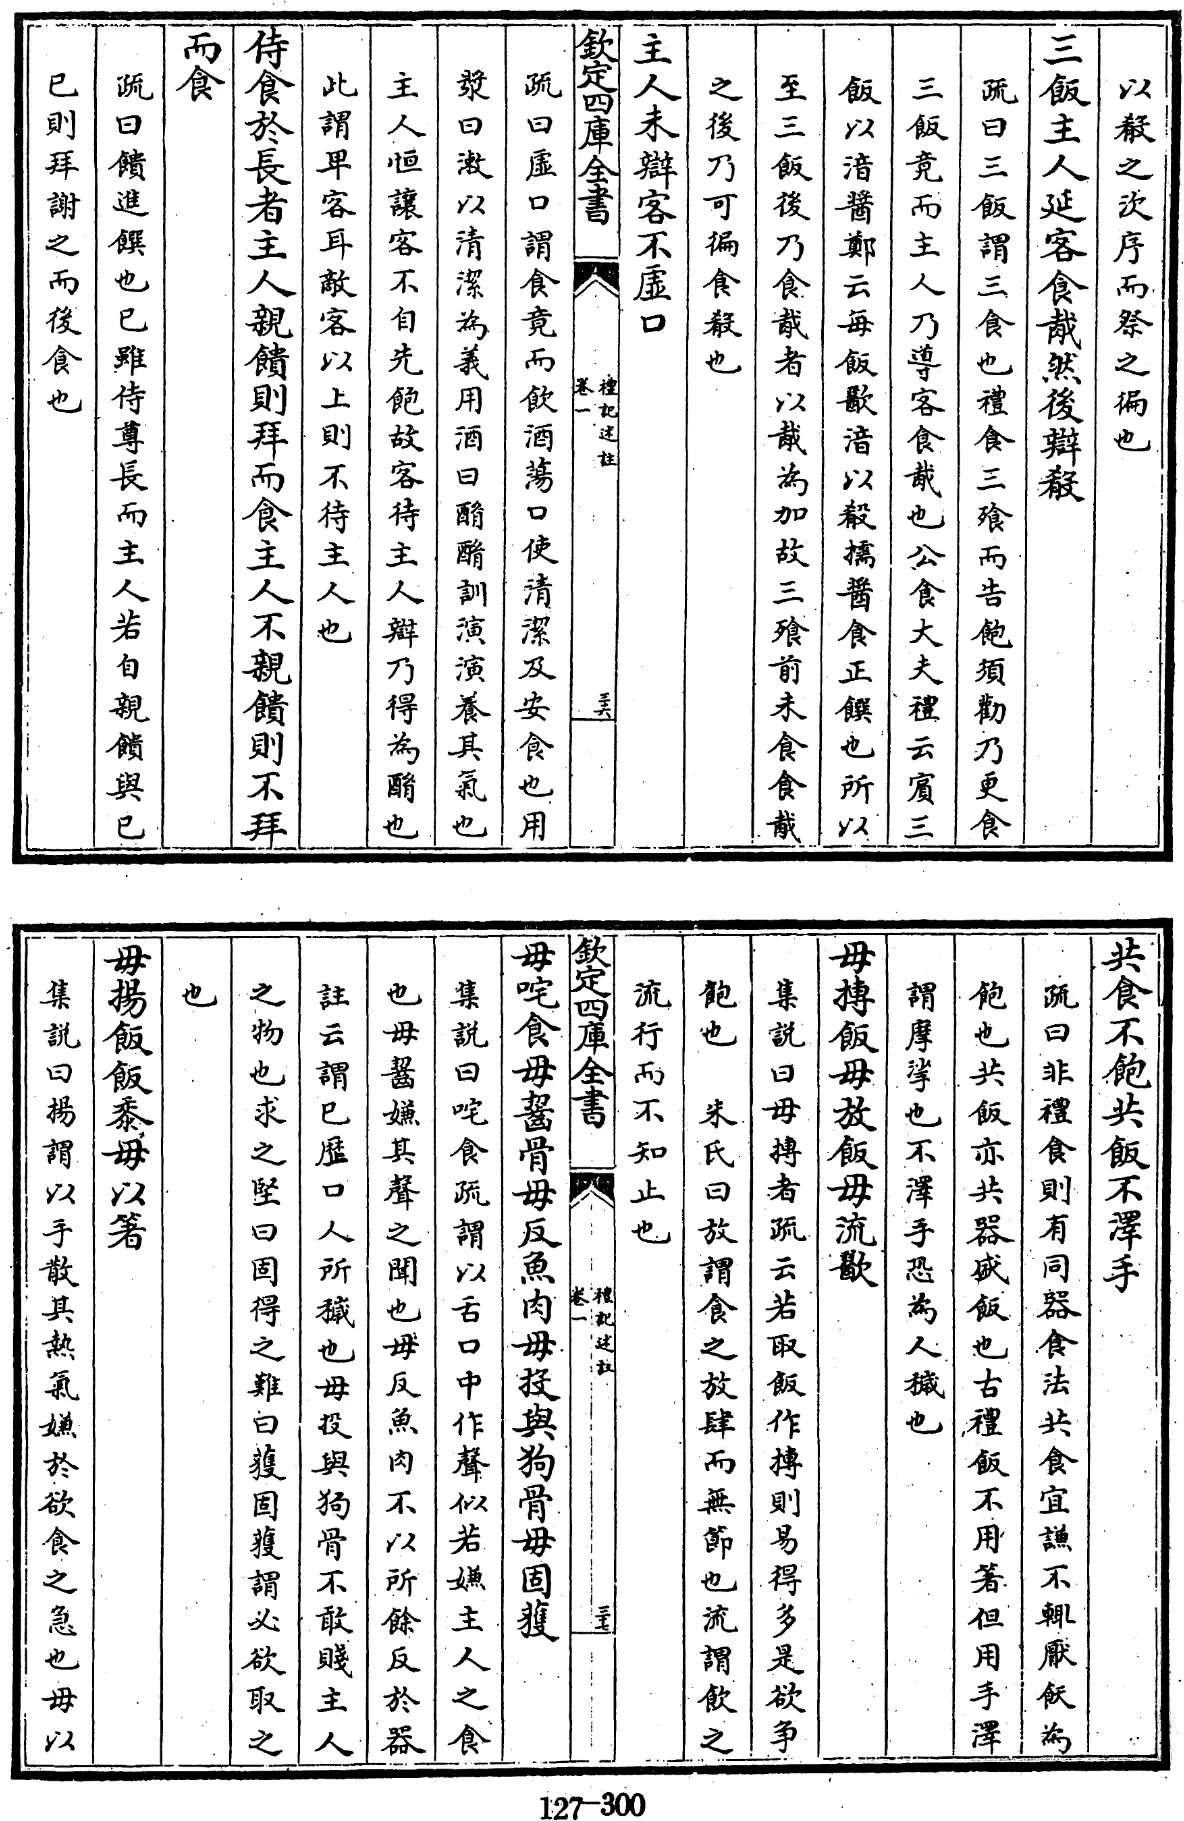 以殽之次序而祭之徧也
三飯主人延客食胾然後辯殽
疏曰三飯謂三食也禮食三飱而告飽須勸乃更食
三飯竟而主人乃導客食胾也公食大夫禮云賓三
飯以湆醬鄭云每飯歠湆以殽擩醬食正饌也所以
至三飯後乃食胾者以胾為加故三飱前未食食胾
之後乃可徧食殽也
主人未辯客不虛口
欽定四庫全書
禮記述註
卷一
三六
疏曰虛口謂食竟而飲酒蕩口使清潔及安食也用
漿曰漱以清潔為義用酒曰酳酳訓演演養其氣也
主人恒讓客不自先飽故客待主人辯乃得為酳也
此謂卑客耳敵客以上則不待主人也
侍食於長者主人親饋則拜而食主人不親饋則不拜
而食
疏曰饋進饌也已雖侍尊長而主人若自親饋與已
已則拜謝之而後食也
共食不飽共飯不澤手
疏曰非禮食則有同器食法共食宜謙不輙厭飫為
飽也共飯亦共器盛飯也古禮飯不用箸但用手澤
謂摩挲也不澤手恐為人穢也
毋摶飯毋放飯毋流歠
集説曰毋摶者疏云若取飯作摶則易得多是欲爭
飽也 朱氏曰放謂食之放肆而無節也流謂飲之
流行而不知止也
欽定四庫全書
禮記述註
卷一
三七
毋咤食毋齧骨毋反魚肉毋投與狗骨毋固獲
集説曰咤食疏謂以舌口中作聲似若嫌主人之食
也毋齧嫌其聲之聞也毋反魚肉不以所餘反於器
註云謂已歷口人所穢也毋投與狗骨不敢賤主人
之物也求之堅曰固得之難曰獲固獲謂必欲取之
也
毋揚飯飯黍毋以箸
集説曰揚謂以手散其熱氣嫌於欲食之急也毋以
127-300